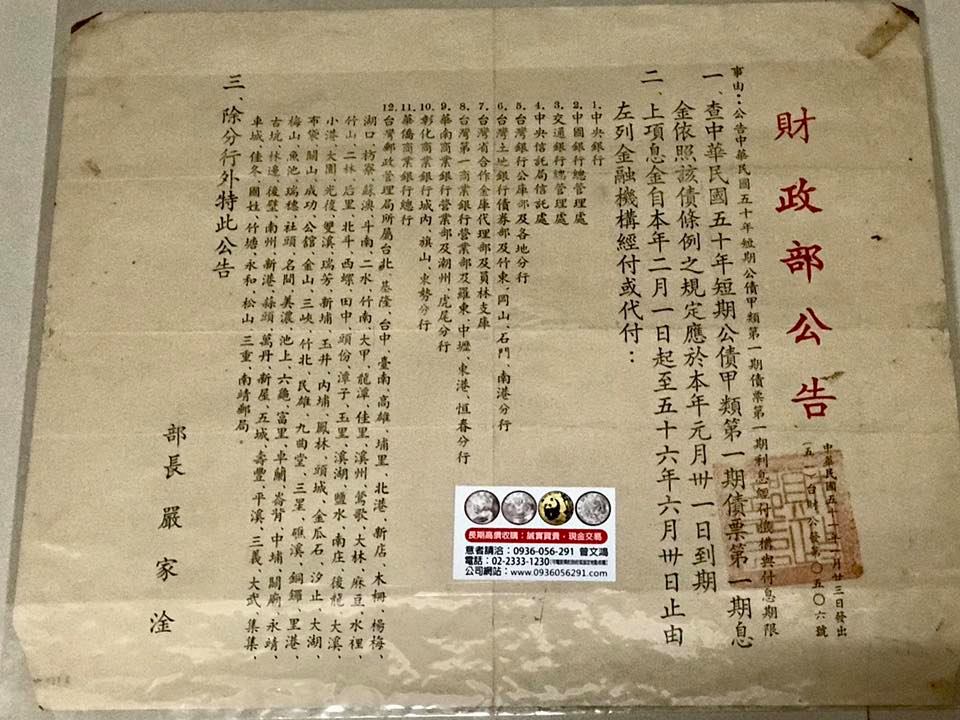 財政部公告
中華民國五十一年一月廿三日發出
(五一)台財公發第〇五〇六號
事由：公告中華民國五十年短期公債甲類第一期債票第一期利息經付機構與付息期限
一、查中華民國五十年短期公債甲類第一期債票第一期息
金依照該債條例之規定應於本年元月卅一日到期
二、上項息金自本年二月一日起至五十六年六月卅日止由
左列金融機構經付或代付：
1.中央銀行
2.中國銀行總管理處
3.交通銀行總管理處
4.中央信託局信託處
5.台灣銀行公庫部及各地分行
6.台灣土地銀行債券部及竹東、岡山、石門、南港分行
7.台灣省合作金庫代理部及員林支庫
8.台灣第一商業銀行營業部及羅東、中壢、東港、恒春分行
9.華南商業銀行營業部及潮州、虎尾分行
10.彰化商業銀行城內、旗山、東勢分行
11.華僑商業銀行總行
12.台灣郵政管理局所屬台北、基隆、台中、臺南、高雄、埔里、北港、新店、木柵、楊梅、
湖口、枋寮、蘇澳、斗南、二水、竹南、大甲、龍潭、佳里、溪州、鶯歌、大林、麻豆、水裡、
竹山、二林、后里、北斗、西螺、田中、頭份、潭子、玉里、溪湖、鹽水、南庄、後龍、大溪、
小港、大園、光復、雙溪、瑞芳、新埔、玉井、內埔、鳳林、頭城、金瓜石、汐止、大湖、
布袋、關山、成功、公館、金山、三峽、竹北、民雄、九曲堂、三星、礁溪、銅鑼、里港、
梅山、魚池、瑞穗、社頭、名間、美濃、池上、六龜、富里、卓蘭、崙背、中埔、關廟、永靖、
古坑、林邊、後壁、南州、新港、蒜頭、萬丹、新屋、五城、壽豐、平溪、三義、大武、集集、
車城、佳冬、國姓、竹塘、永和、松山、三重、南靖郵局。
三、除分行外特此公告
部長 嚴家淦
長期高價收購：誠實買賣・現金交易
意者請洽：0936-056-291 曾文鴻
電話：02-2333-1230
公司網站：www.0936056291.com